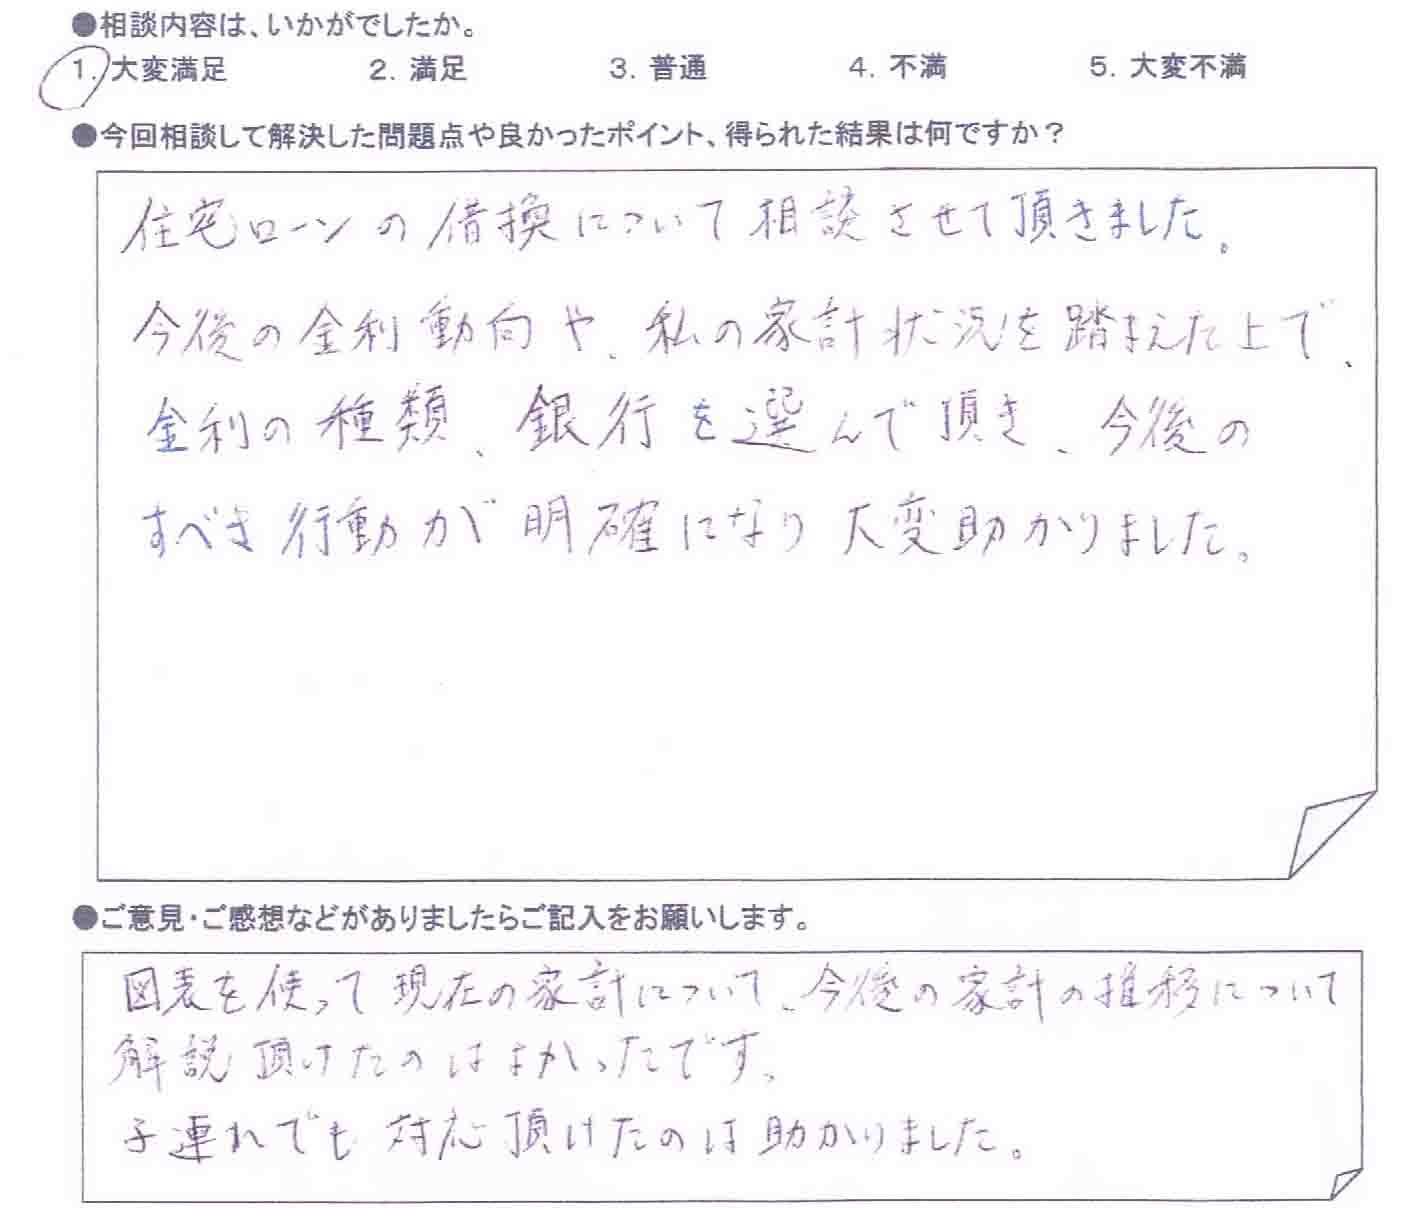 ●相談内容は、いかがでしたか。
1. 大変満足 2. 満足 3. 普通 4. 不満 5. 大変不満
●今回相談して解決した問題点や良かったポイント、得られた結果は何ですか？
住宅ローンの借換について相談させて頂きました。
今後の金利動向や、私の家計状況を踏まえた上で、
金利の種類、銀行を選んで頂き、今後の
すべき行動が明確になり大変助かりました。
●ご意見・ご感想などがありましたらご記入をお願いします。
図表を使って現在の家計について、今後の家計の推移について
解説頂けたのはよかったです。
子連れでも対応頂けたのは助かりました。